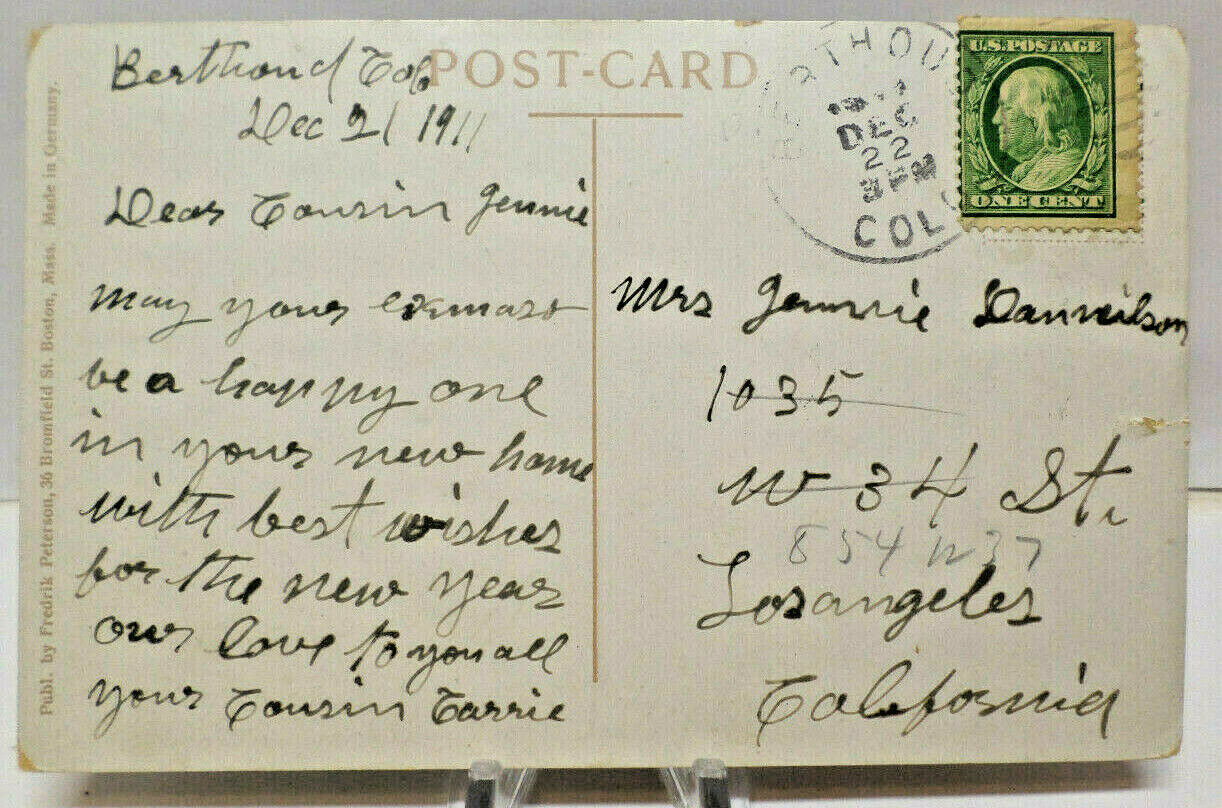 POST-CARD
Berthoud Colo
Dec 21 1911
Dear Cousin Jennie
may your exmast
be a happy one
in your new home
with best wishes
for the new year
our love to you all
your Cousin Carrie
BERTHOUD
DEC
22
COLO
U.S. POSTAGE
ONE CENT
Mrs Jennie Danneilson
1035
W 34 St.
854 W 37
Los angeles
California
Publ. by Fredrik Peterson, 36 Bromfield St. Boston, Mass. Made in Germany.